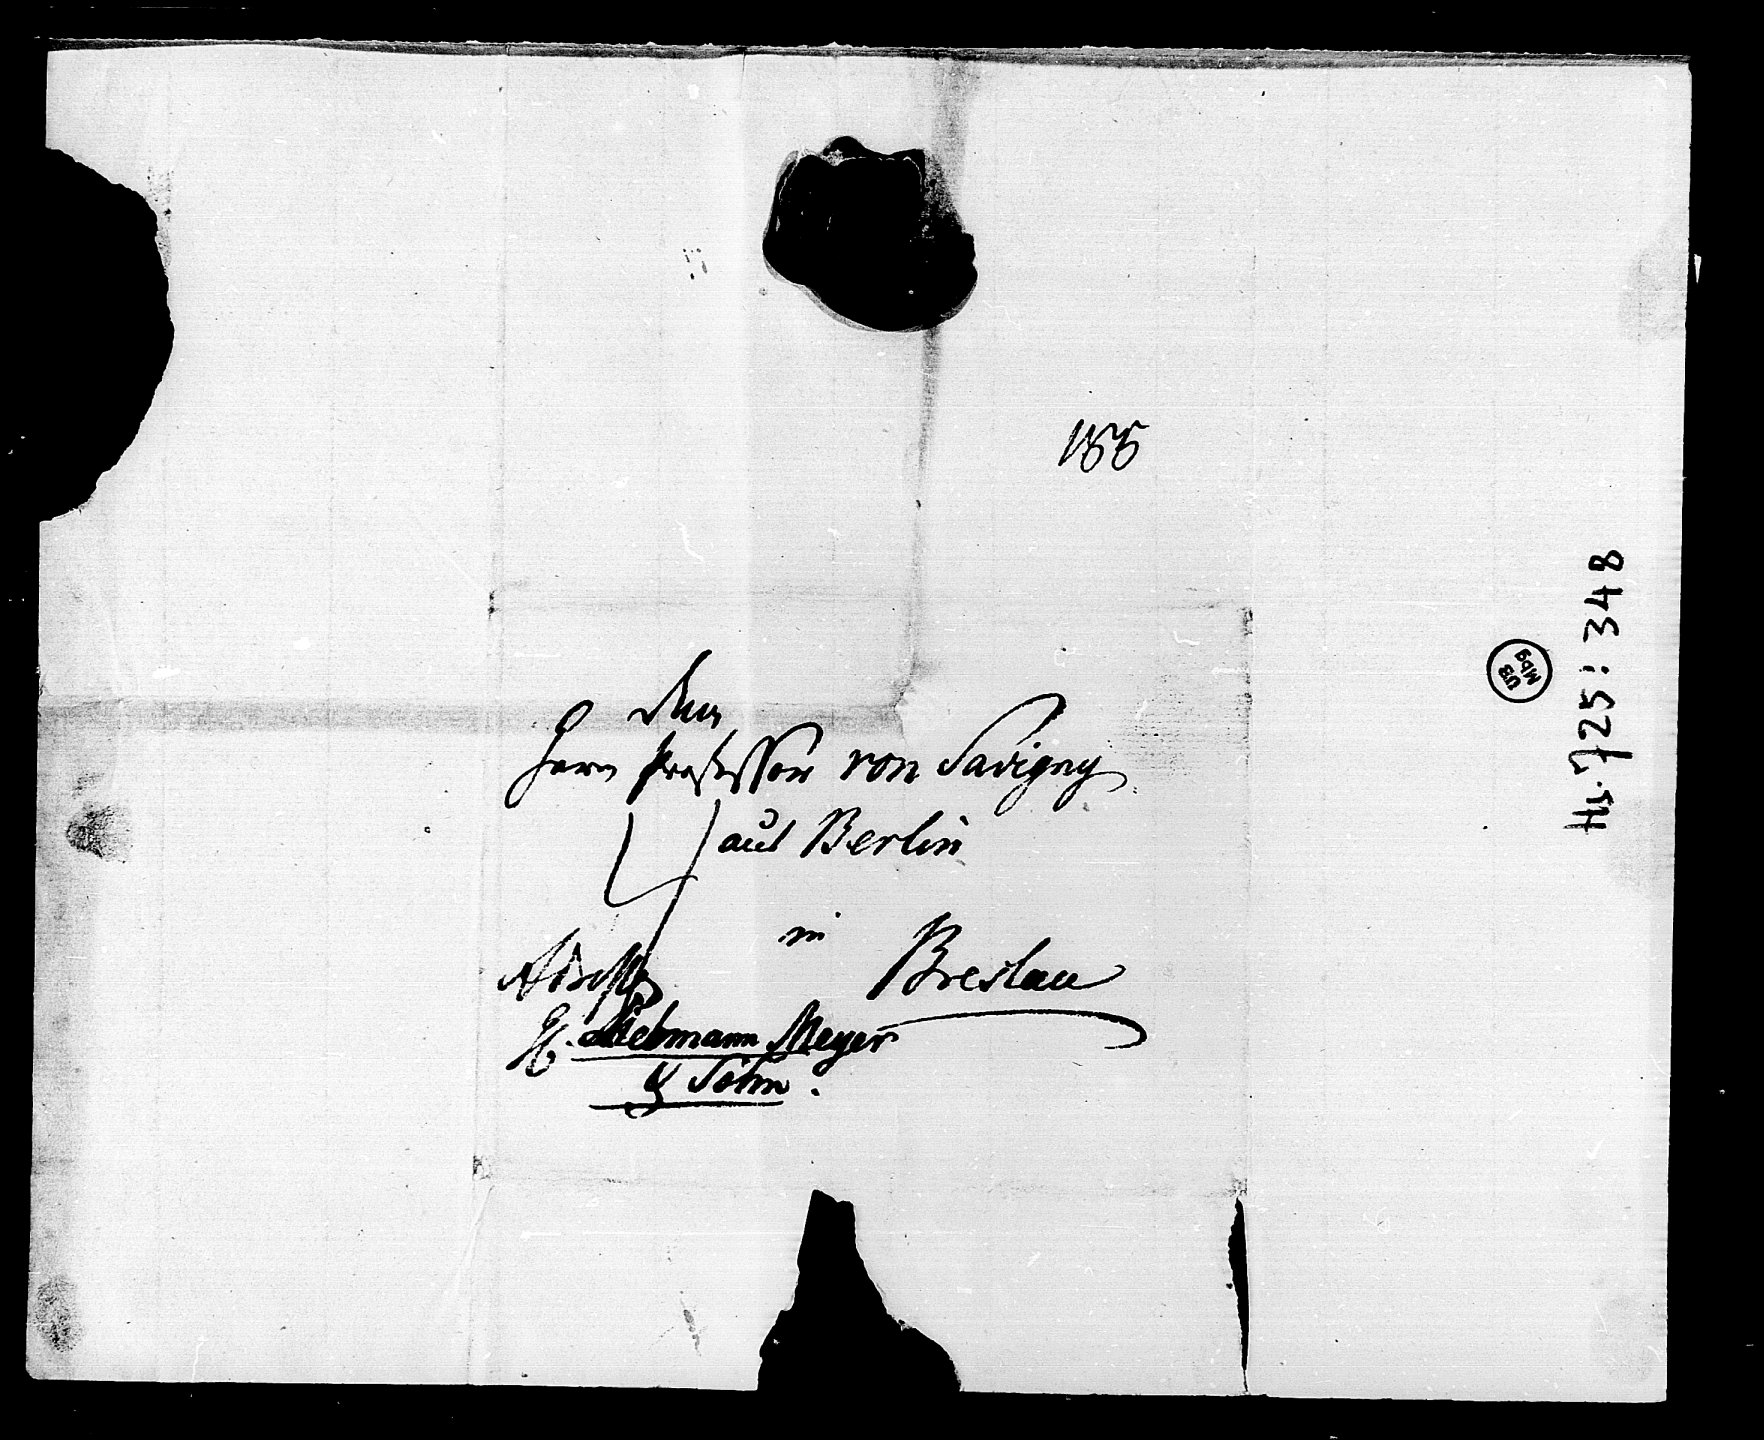 Dem
Herrn Professor von Savigny
aus Berlin
in Breslau
H. Liebmann Meyer
& Sohn.
UB
Mbg
Hs. 725:348